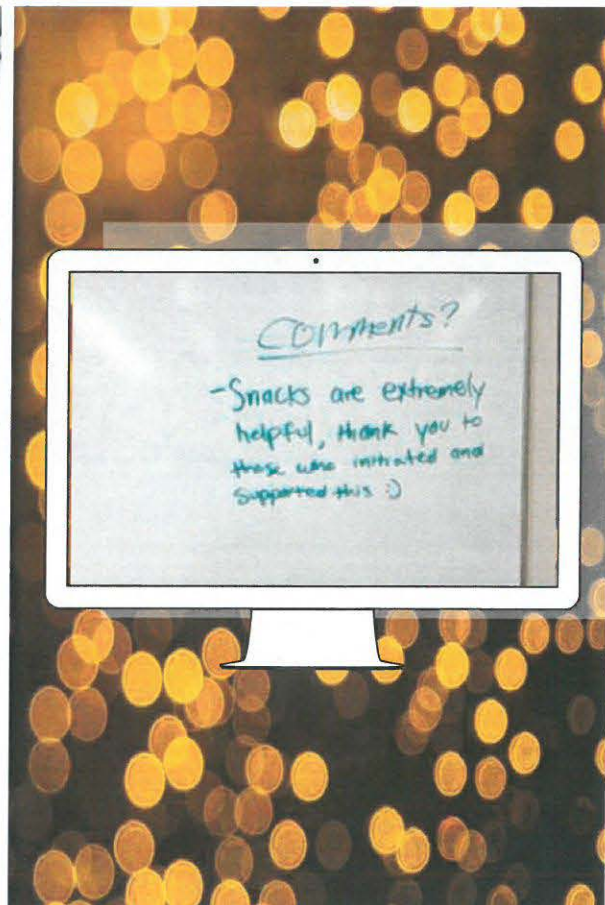 Comments?
-Snacks are extremely
helpful, thank you to
those who initiated and
supported this :)